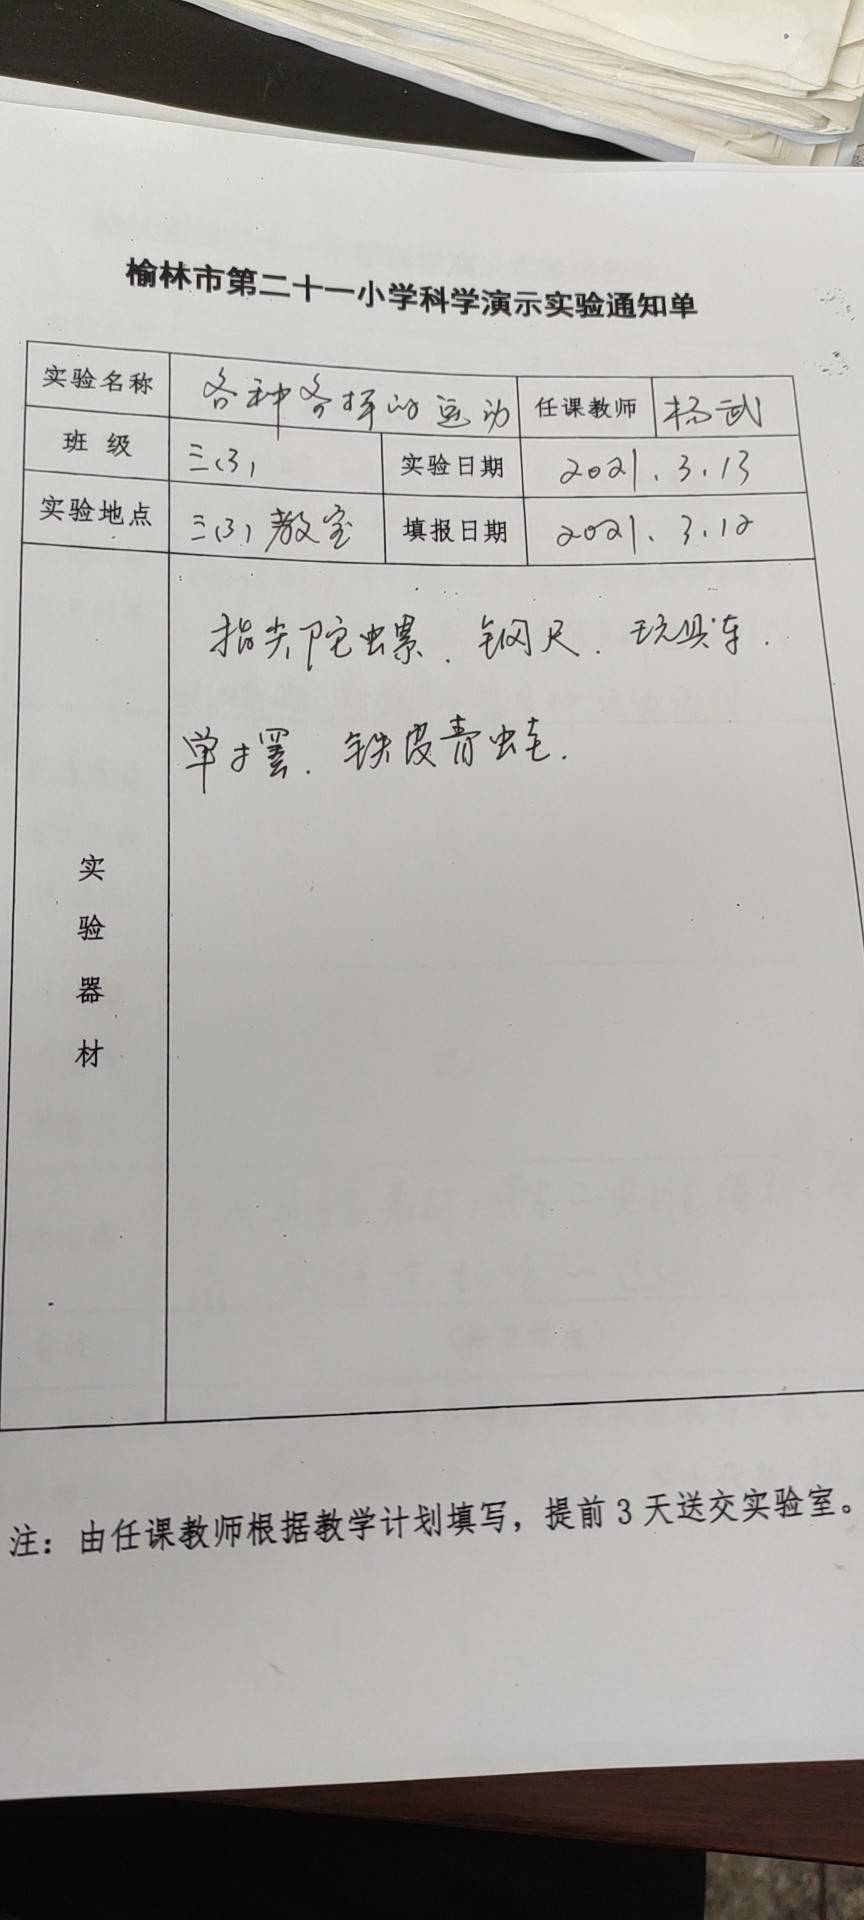 榆林市第二十一小学科学演示实验通知单
实验名称 各种各样的运动 任课教师 杨武
班 级 三(3) 实验日期 2021.3.13
实验地点 三(3)教室 填报日期 2021.3.12
实验器材
指尖陀螺、钢尺、玩具车、
单摆、铁皮青蛙.
注：由任课教师根据教学计划填写，提前3天送交实验室。